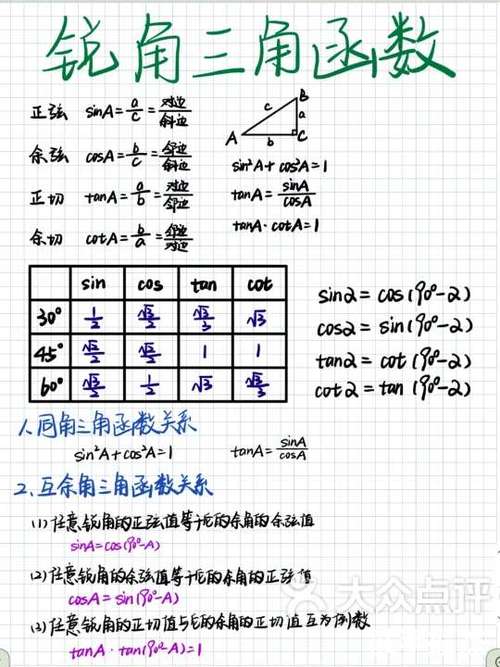 锐角三角函数
正弦 sinA=a/c=对边/斜边
余弦 cosA=b/c=邻边/斜边
正切 tanA=a/b=对边/邻边
余切 cotA=b/a=邻边/对边
B
c a
A b C
sin²A+cos²A=1
tanA=sinA/cosA
tanA·cotA=1
sin cos tan cot
30° 1/2 √3/2 √3/3 √3
45° √2/2 √2/2 1 1
60° √3/2 1/2 √3 √3/3
sin2=cos(90°-2)
cos2=sin(90°-2)
tan2=cot(90°-2)
cot2=tan(90°-2)
1.同角三角函数关系
sin²A+cos²A=1 tanA=sinA/cosA
2.互余角三角函数关系
(1)任意锐角的正弦值等于它的余角的余弦值
sinA=cos(90°-A)
(2)任意锐角的余弦值等于它的余角的正弦值
cosA=sin(90°-A)
(3)任意锐角的正切值与它的余角的正切值互为倒数
tanA·tan(90°-A)=1
大众点评